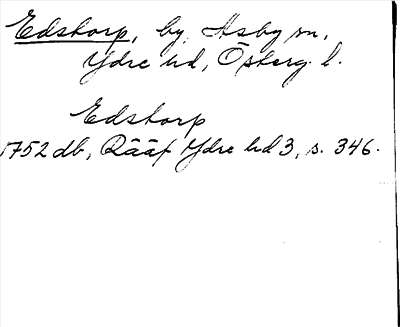 Edstorp, by, Asby sn,
Ydre hd, Österg. l.
Edstorp
1752 db, Rääf Ydre hd 3, s. 346.